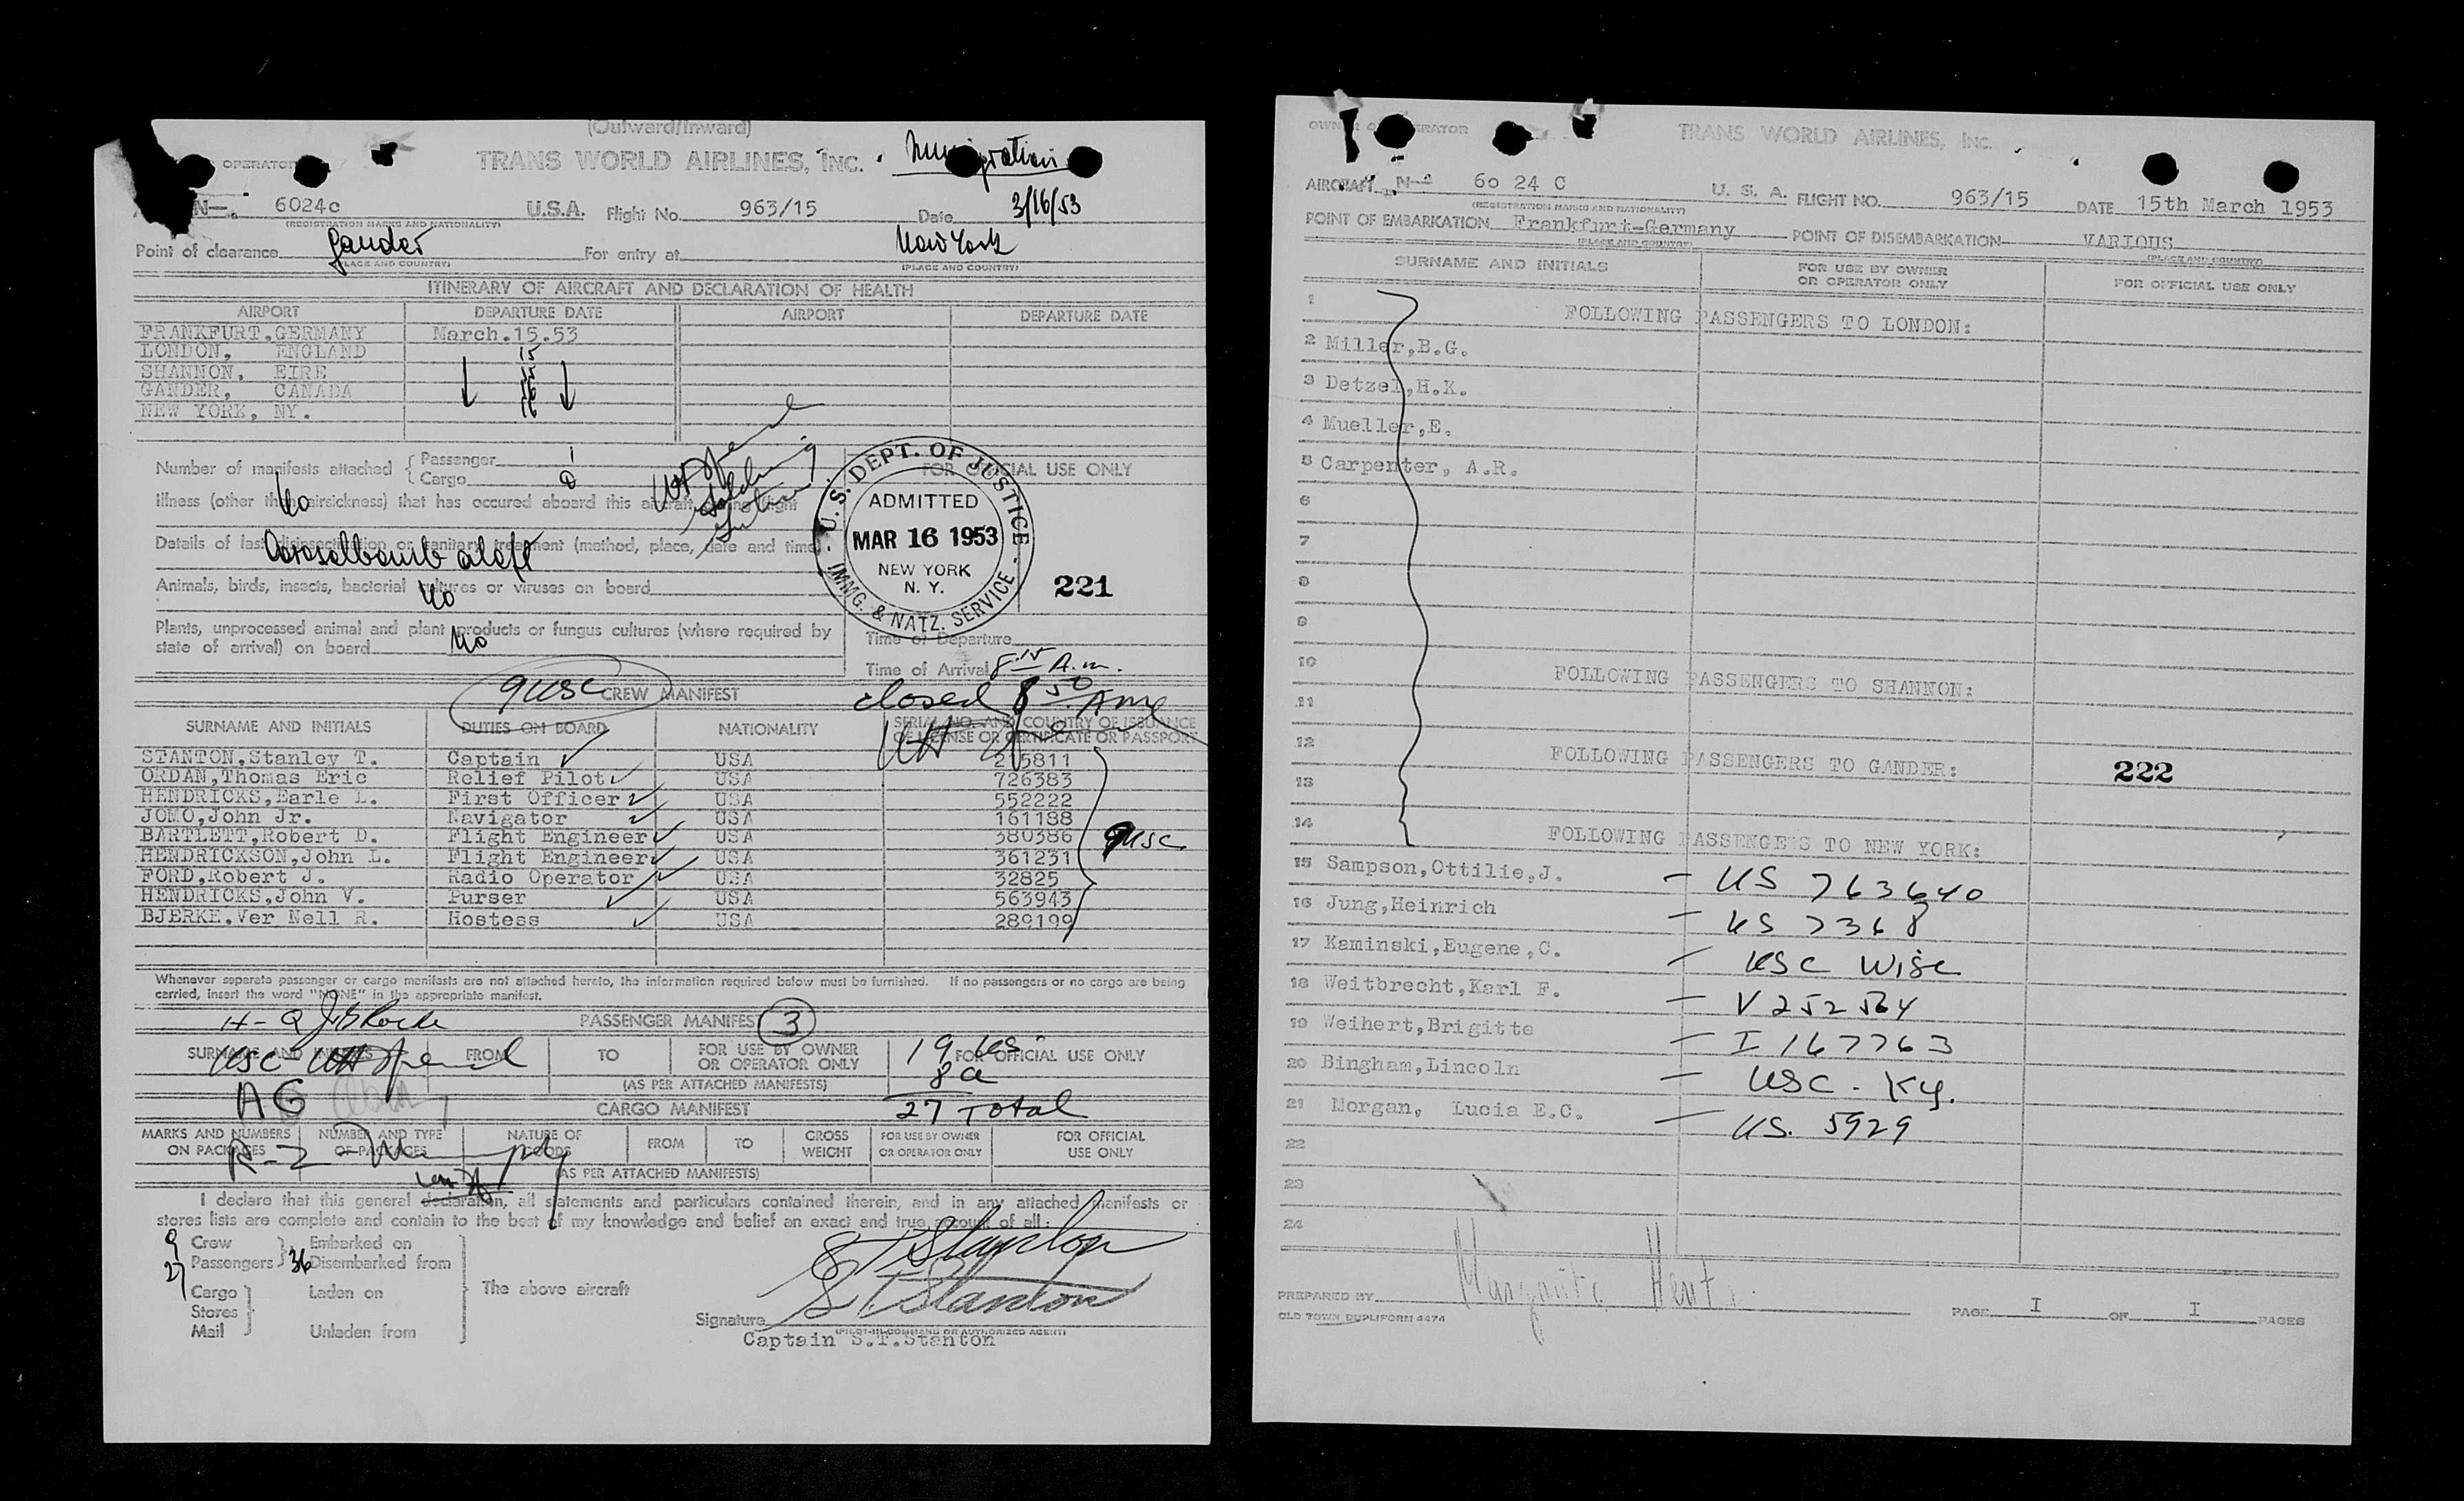 (Outward/Inward)
OPERATOR TRANS WORLD AIRLINES, Inc. Immigration
N-. 6024c U.S.A. Flight No. 963/15 Date 3/16/53
(REGISTRATION MARKS AND NATIONALITY)
Point of clearance Gander For entry at New York
(PLACE AND COUNTRY) (PLACE AND COUNTRY)
ITINERARY OF AIRCRAFT AND DECLARATION OF HEALTH
AIRPORT DEPARTURE DATE AIRPORT DEPARTURE DATE
FRANKFURT,GERMANY March.15.53
LONDON, ENGLAND 15
SHANNON, EIRE 15
GANDER, CANADA 16
NEW YORK, NY. 16
Number of manifests attached { Passenger 1
Cargo 0
FOR OFFICIAL USE ONLY
Illness (other than airsickness) that has occured aboard this aircraft during flight
No
Details of last disinsectization or sanitary treatment (method, place, date and time)
Aerosolbomb aloft
Animals, birds, insects, bacterial cultures or viruses on board No
Plants, unprocessed animal and plant products or fungus cultures (where required by
state of arrival) on board No
U.S. DEPT. OF JUSTICE
ADMITTED
MAR 16 1953
NEW YORK
N. Y.
IMMG. & NATZ. SERVICE
221
Time of Departure
Time of Arrival 8:15 A.m.
9 USC CREW MANIFEST closed 8 50 Am
SURNAME AND INITIALS DUTIES ON BOARD NATIONALITY SERIAL NO. AND COUNTRY OF ISSUANCE
OF LICENSE OR CERTIFICATE OR PASSPORT
STANTON,Stanley T. Captain USA 215811
ORDAN,Thomas Eric Relief Pilot USA 726383
HENDRICKS,Earle L. First Officer USA 552222
JOMO,John Jr. Navigator USA 161188
BARTLETT,Robert D. Flight Engineer USA 380386 9 USC
HENDRICKSON,John L. Flight Engineer USA 361231
FORD,Robert J. Radio Operator USA 32825
HENDRICKS,John V. Purser USA 563943
BJERKE,Ver Nell R. Hostess USA 289199
Whenever separate passenger or cargo manifests are not attached hereto, the information required below must be furnished. If no passengers or no cargo are being
carried, insert the word "NONE" in the appropriate manifest.
PASSENGER MANIFEST 3
SURNAME AND INITIALS FROM TO FOR USE BY OWNER
OR OPERATOR ONLY FOR OFFICIAL USE ONLY
USC 19 US
8 a
(AS PER ATTACHED MANIFESTS)
AG CARGO MANIFEST 27 Total
MARKS AND NUMBERS
ON PACKAGES NUMBER AND TYPE
OF PACKAGES NATURE OF
GOODS FROM TO GROSS
WEIGHT FOR USE BY OWNER
OR OPERATOR ONLY FOR OFFICIAL
USE ONLY
R-2
(AS PER ATTACHED MANIFESTS)
I declare that this general declaration, all statements and particulars contained therein, and in any attached manifests or
stores lists are complete and contain to the best of my knowledge and belief an exact and true account of all:
9 Crew Embarked on
27 Passengers 36 Disembarked from
Cargo Laden on The above aircraft
Stores
Mail Unladen from
S T Stanton
Signature S T. Stanton
(PILOT-IN-COMMAND OR AUTHORIZED AGENT)
Captain S.T.Stanton
OWNER OR OPERATOR TRANS WORLD AIRLINES, Inc.
AIRCRAFT N- 60 24 C U. S. A. FLIGHT NO. 963/15 DATE 15th March 1953
(REGISTRATION MARKS AND NATIONALITY)
POINT OF EMBARKATION Frankfurt-Germany POINT OF DISEMBARKATION VARIOUS
(PLACE AND COUNTRY) (PLACE AND COUNTRY)
SURNAME AND INITIALS FOR USE BY OWNER
OR OPERATOR ONLY FOR OFFICIAL USE ONLY
1 FOLLOWING PASSENGERS TO LONDON:
2 Miller,B.G.
3 Detzel,H.K.
4 Mueller,E.
5 Carpenter, A.R.
6
7
8
9
10 FOLLOWING PASSENGERS TO SHANNON:
11
12 FOLLOWING PASSENGERS TO GANDER: 222
13
14 FOLLOWING PASSENGERS TO NEW YORK:
15 Sampson,Ottilie,J. - US 763640
16 Jung,Heinrich - US 7368
17 Kaminski,Eugene,C. - USC Wisc
18 Weitbrecht,Karl F. - V 252564
19 Weihert,Brigitte - I 167763
20 Bingham,Lincoln - USC - Ky.
21 Morgan, Lucia E.C. - US. 5929
22
23
24
PREPARED BY
OLD TOWN DUPLIFORM 4474
PAGE I OF I PAGES